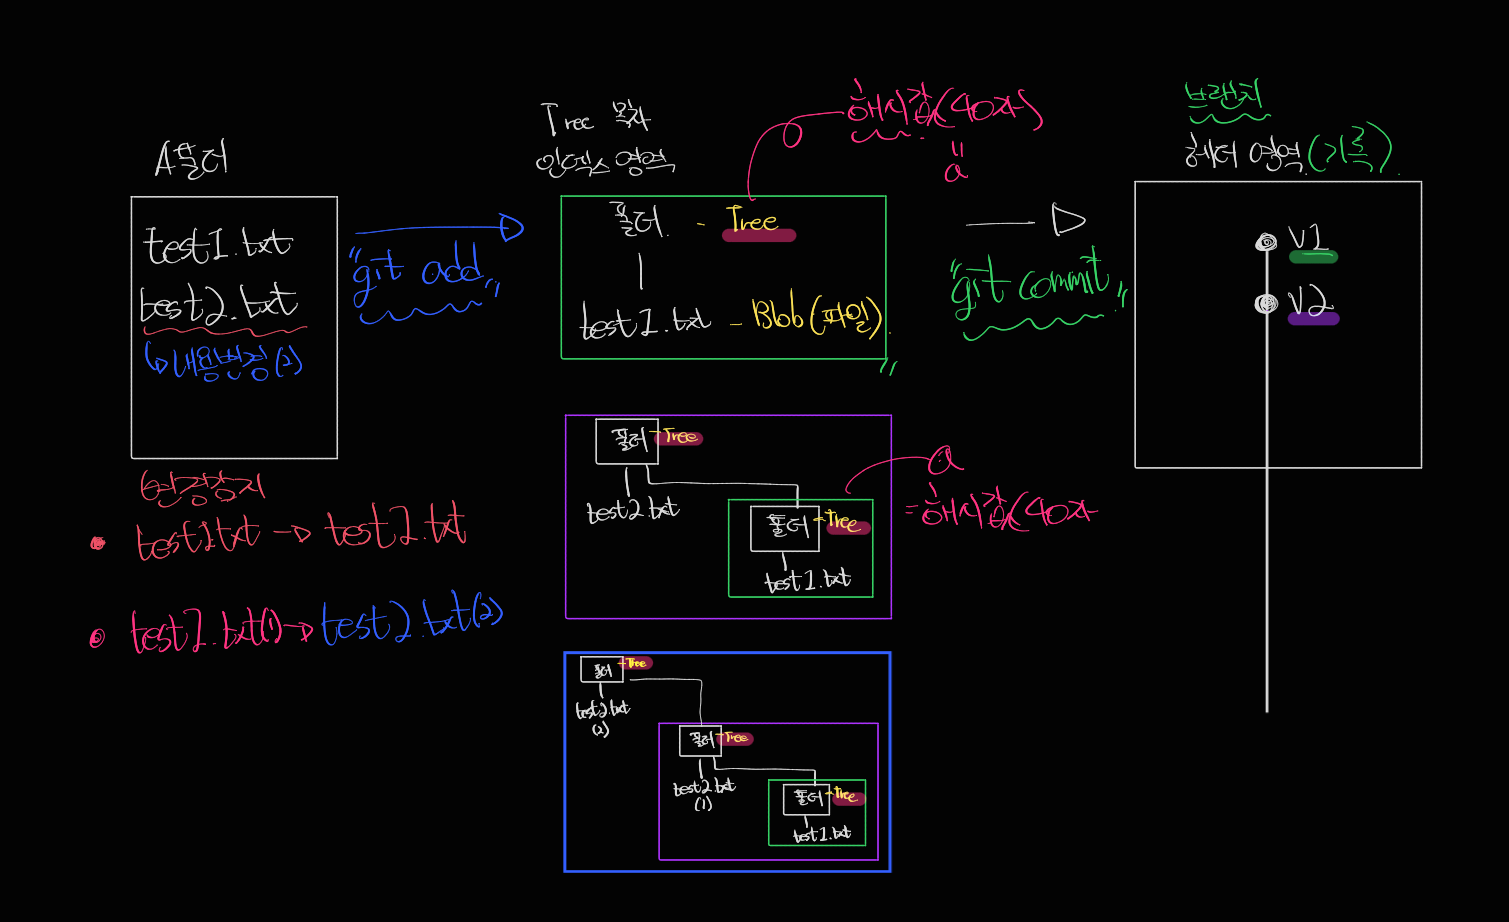 A폴더
test1.txt
test2.txt
↳ 내용변경(2)
변경감지
• test1.txt → test2.txt
• test2.txt(1) → test2.txt(2)
"git add"
Tree 목차
인덱스 영역
해시값(40자)
=
a
폴더 - Tree
test1.txt - Blob(파일)
폴더 - Tree
test2.txt
폴더 - Tree
test1.txt
a
= 해시값(40자
폴더 - Tree
test2.txt
(2)
폴더 - Tree
test2.txt
(1)
폴더 - Tree
test1.txt
"git commit"
브랜치
헤더 영역(기록)
V1
V2